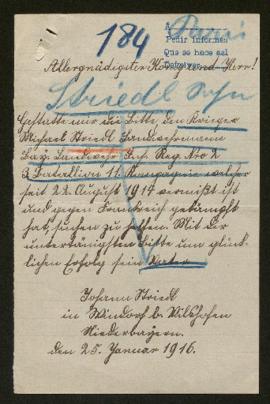 184
Paris
Pedir informes
Que se hace así
Allergnädigster König und Herr!
Striedl Sohn
Gestatte mir die Bitte den Krieger
Michael Striedl Landwehrmann
Bay. Landwehr Inf. Reg. Nro 2
3. Bataillon 11. Kompagnie welcher
seit 22. August 1914 vermißt ist
und gegen Frankreich gekämpft
hat, suchen zu helfen. Mit der
untertänigsten Bitte um glück-
lichen Erfolg sein Vater
Johann Striedl
in Windorf b. Vilshofen
Niederbayern.
den 25. Januar 1916.